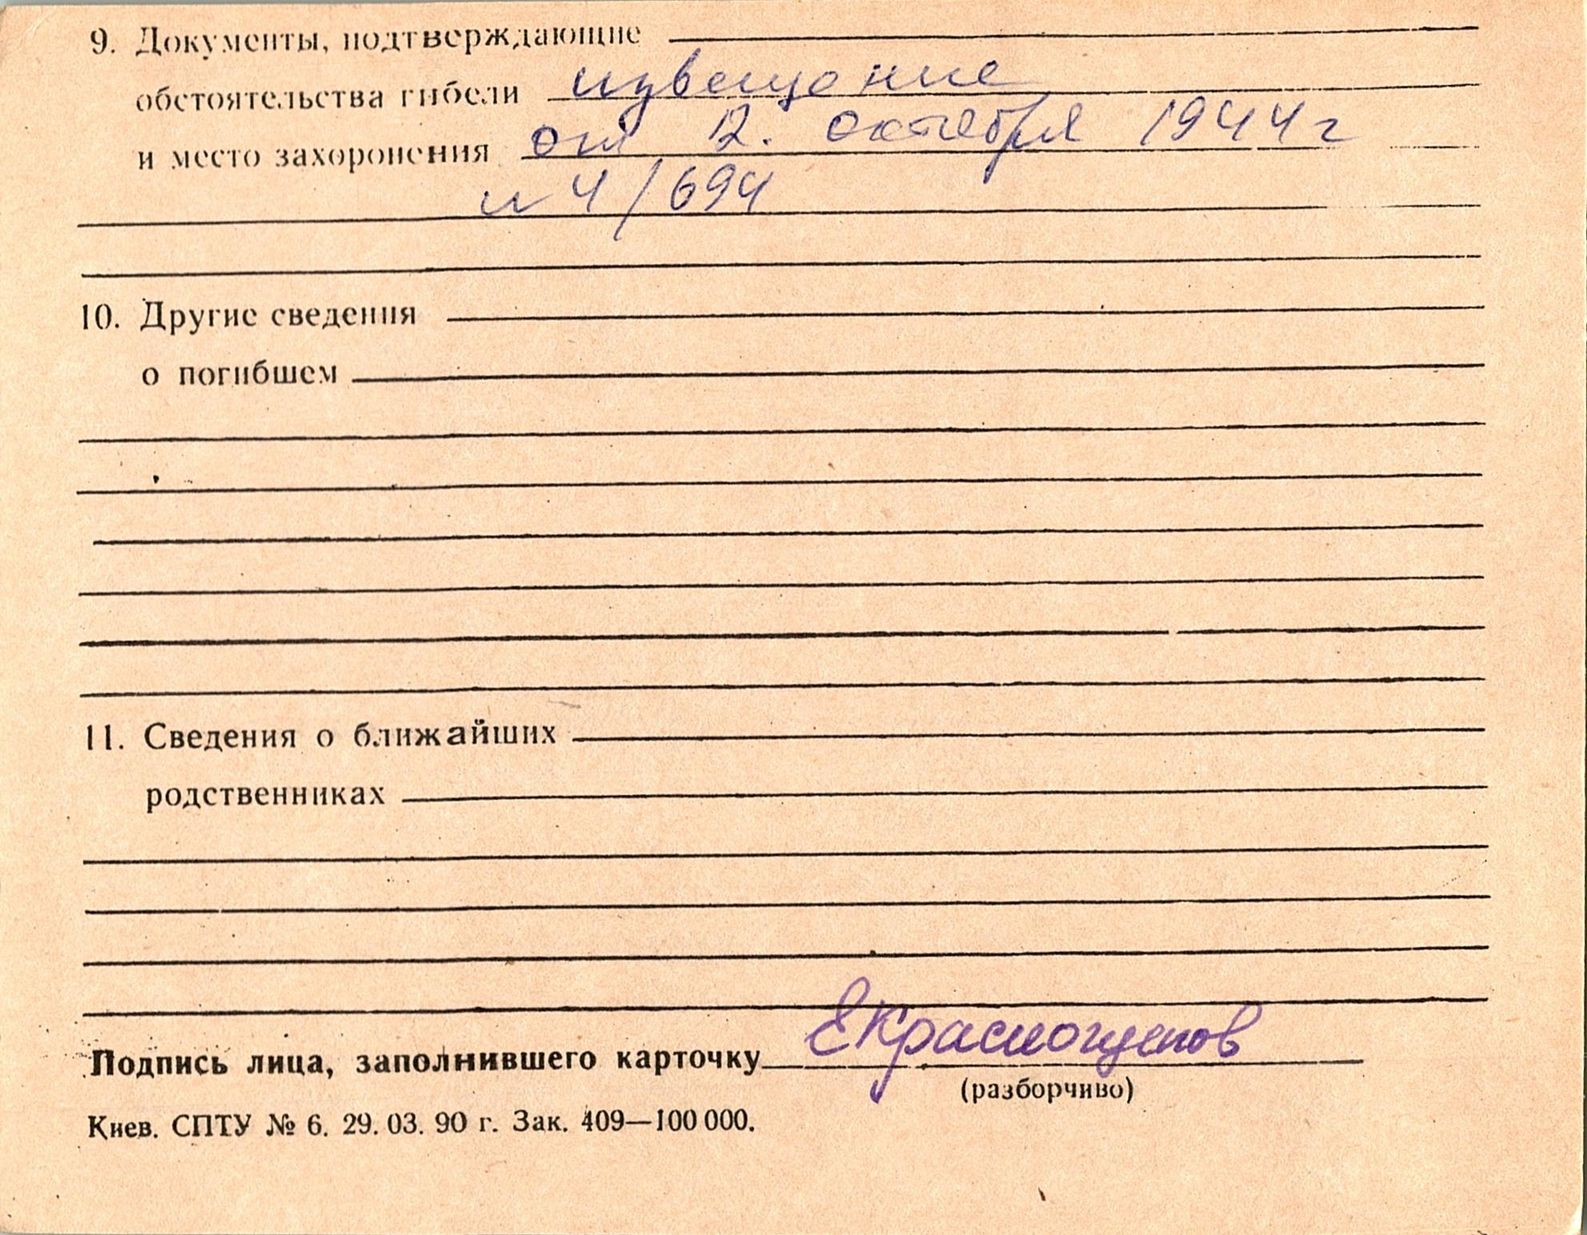 9. Документы, подтверждающие
обстоятельства гибели извещение
и место захоронения от 12. октября 1944 г
и 4/694
10. Другие сведения
о погибшем
11. Сведения о ближайших
родственниках
Подпись лица, заполнившего карточку ЕКраснощепов
(разборчиво)
Киев. СПТУ № 6. 29. 03. 90 г. Зак. 409—100 000.